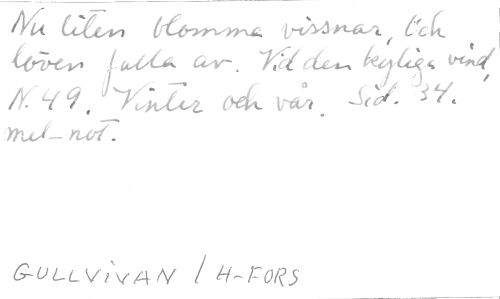 Nu liten blomma vissnar, Och
löven falla av. Vid den kyliga vind,
N. 49. Vinter och vår. Sid. 34.
mel-not.
GULLVIVAN / H-FORS